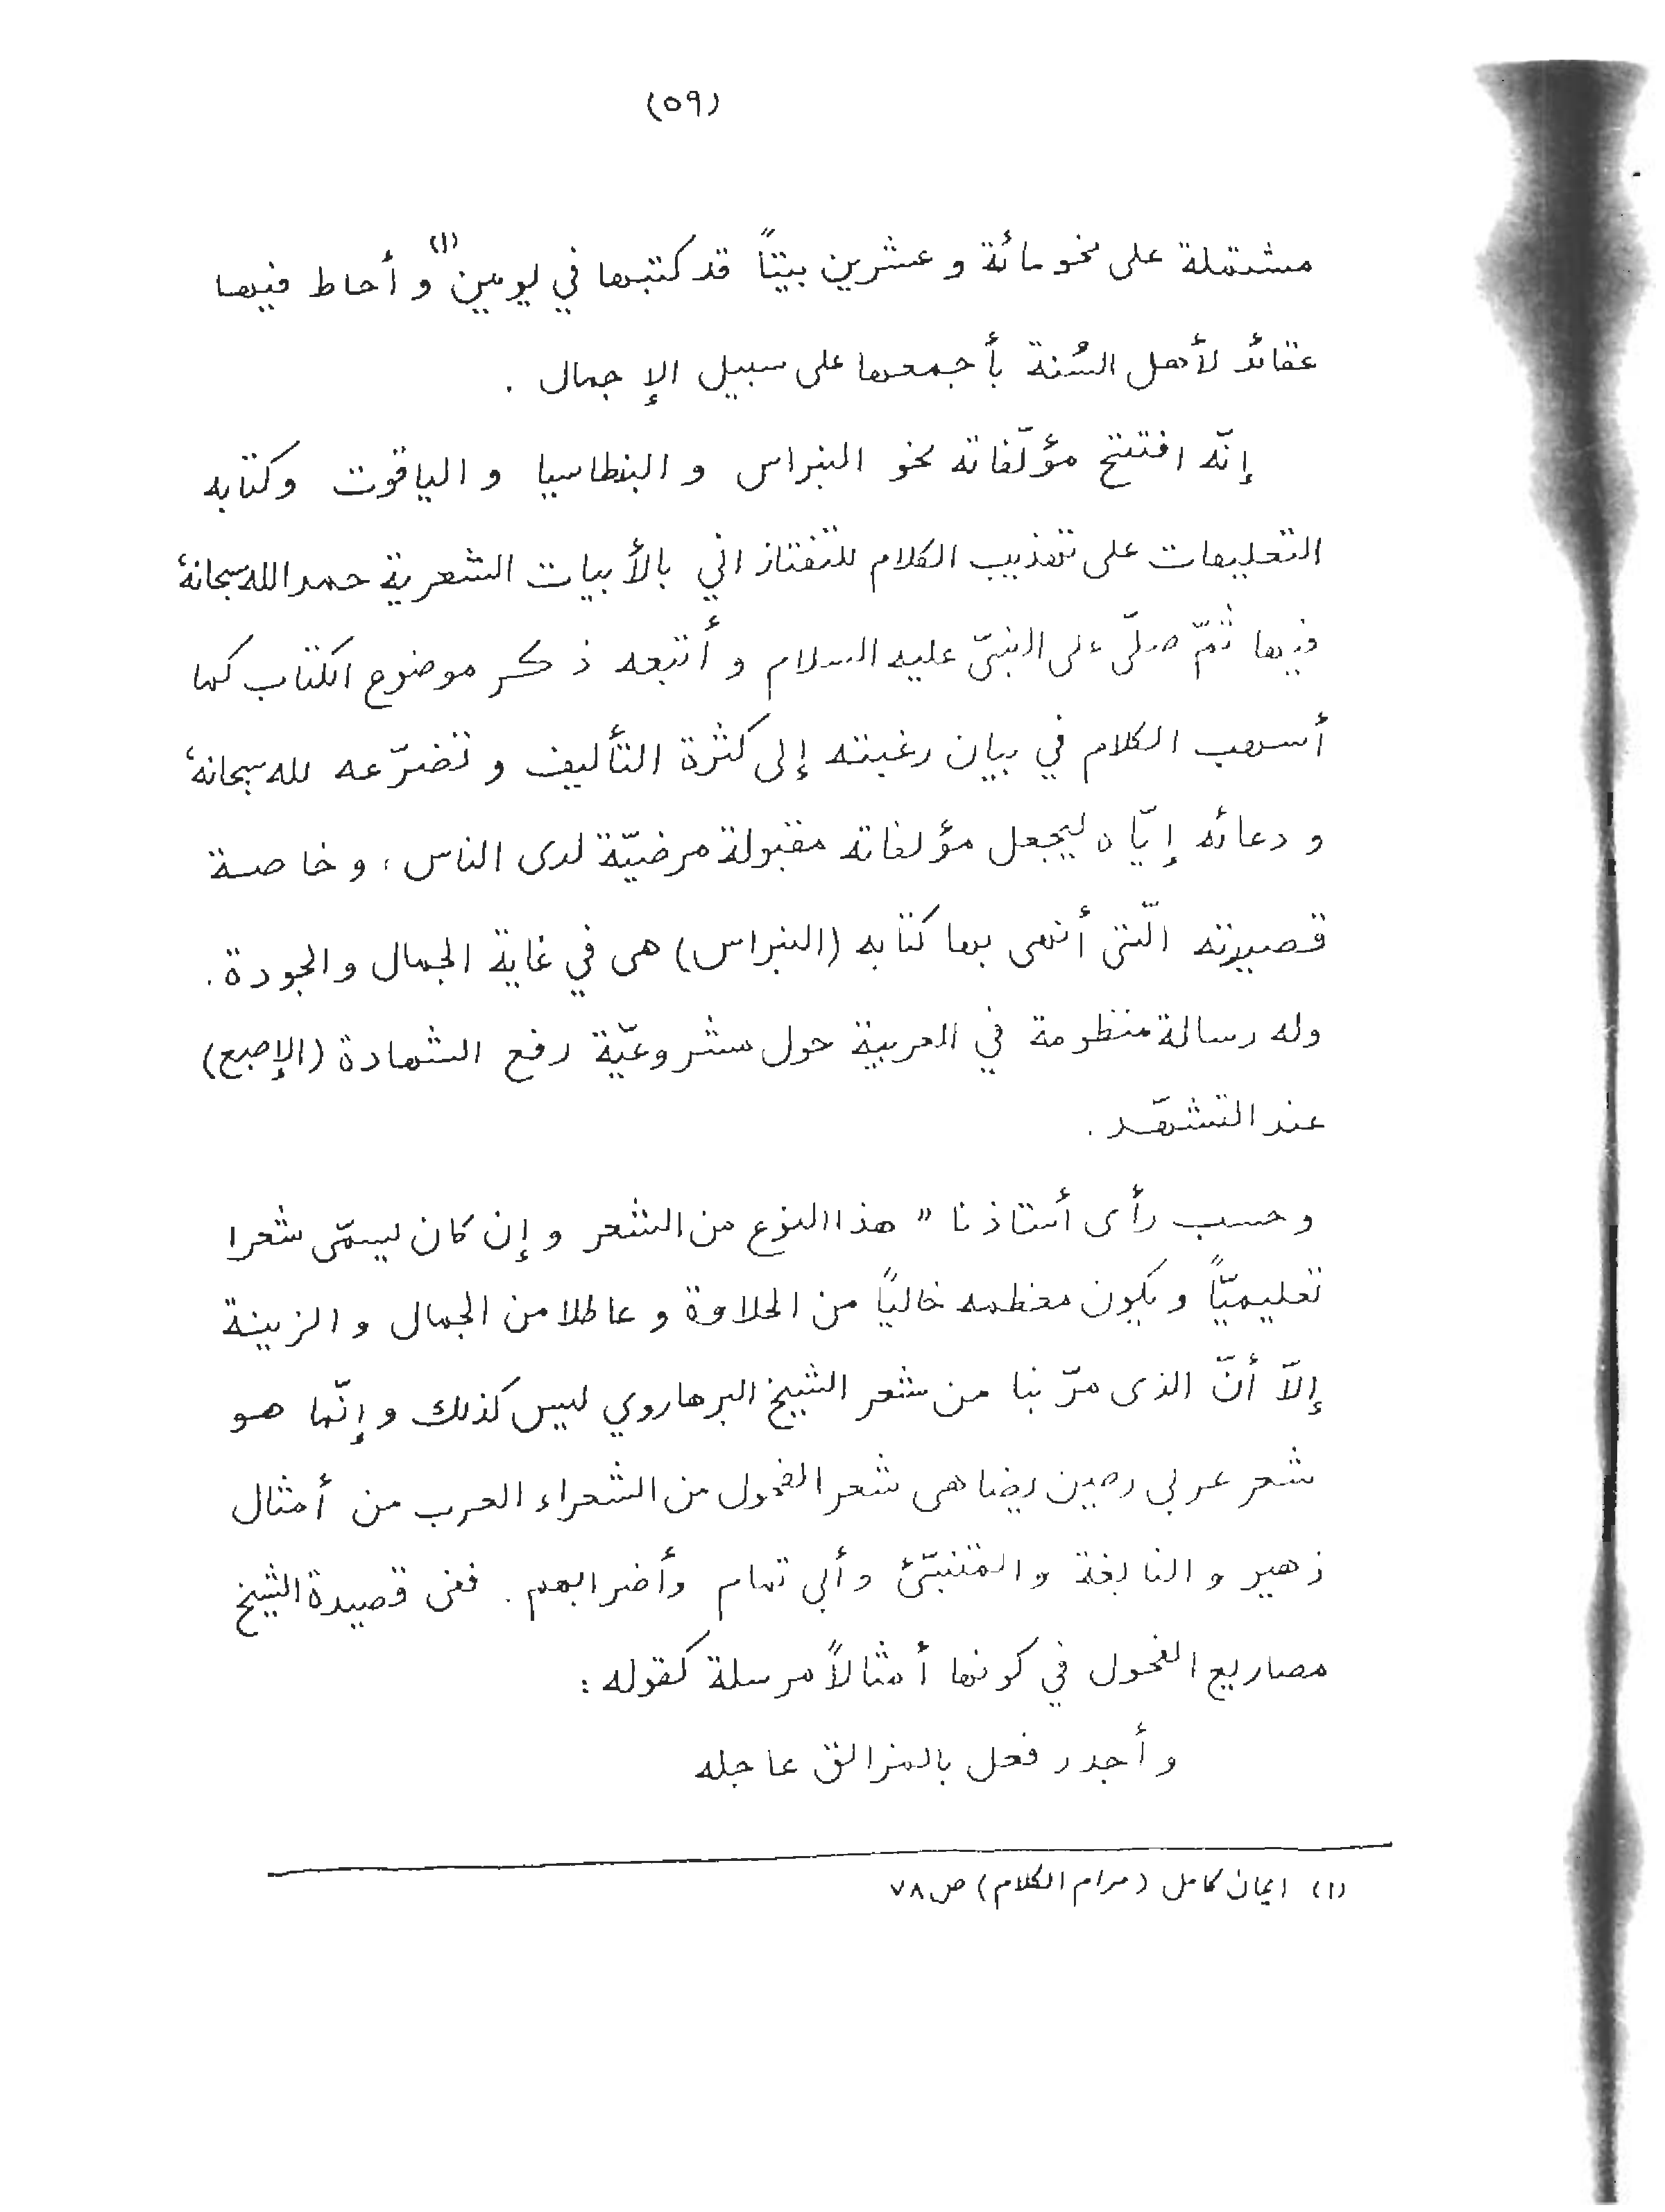 (٥٩)
مشتملة على نحو مائة و عشرين بيتاً قد كتبها في يومين(١) و أحاط فيها
عقائد لأهل السُنة بأجمعها على سبيل الإجمال .
إنّه افتتح مؤلّفاته نحو النبراس و البنطاسيا و الياقوت وكتابه
التعليمات على تهذيب الكلام للتفتازاني بالأبيات الشعرية حمد الله سبحانهٗ
فيها ثمّ صلّى على النبىّ عليه السلام و أتبعه ذكر موضوع الكتاب كما
أسهب الكلام في بيان رغبته إلى كثرة التأليف و تضرّعه لله سبحانهٗ
و دعائه إيّاه ليجعل مؤلفاته مقبولة مرضيّة لدى الناس ، و خاصة
قصيدته الّتى أنهى بها كتابه (النبراس) هى في غاية الجمال والجودة .
وله رسالة منظومة في العربية حول مشروعيّة رفع الشهادة (الإصبع)
عند التشهّد .
و حسب رأى أستاذنا " هذا النوع من الشعر و إن كان يسمّى شعرا
تعليميّاً و يكون معظمه خالياً من الحلاوة و عاطلا من الجمال و الزينة
إلاّ أنّ الذى مرّ بنا من شعر الشيخ البرهاروي ليس كذلك و إنّما هو
شعر عربى رصين يضاهى شعر الفحول من الشعراء العرب من أمثال
زهير و النابغة و المتنبّئ و أبي تمام وأضرابهم . ففى قصيدة الشيخ
مصاريع الفحول في كونها أمثالاً مرسلة كقوله :
و أجدر فعل بالمزالق عاجله
(١) ايمان كامل (مرام الكلام) ص ٧٨